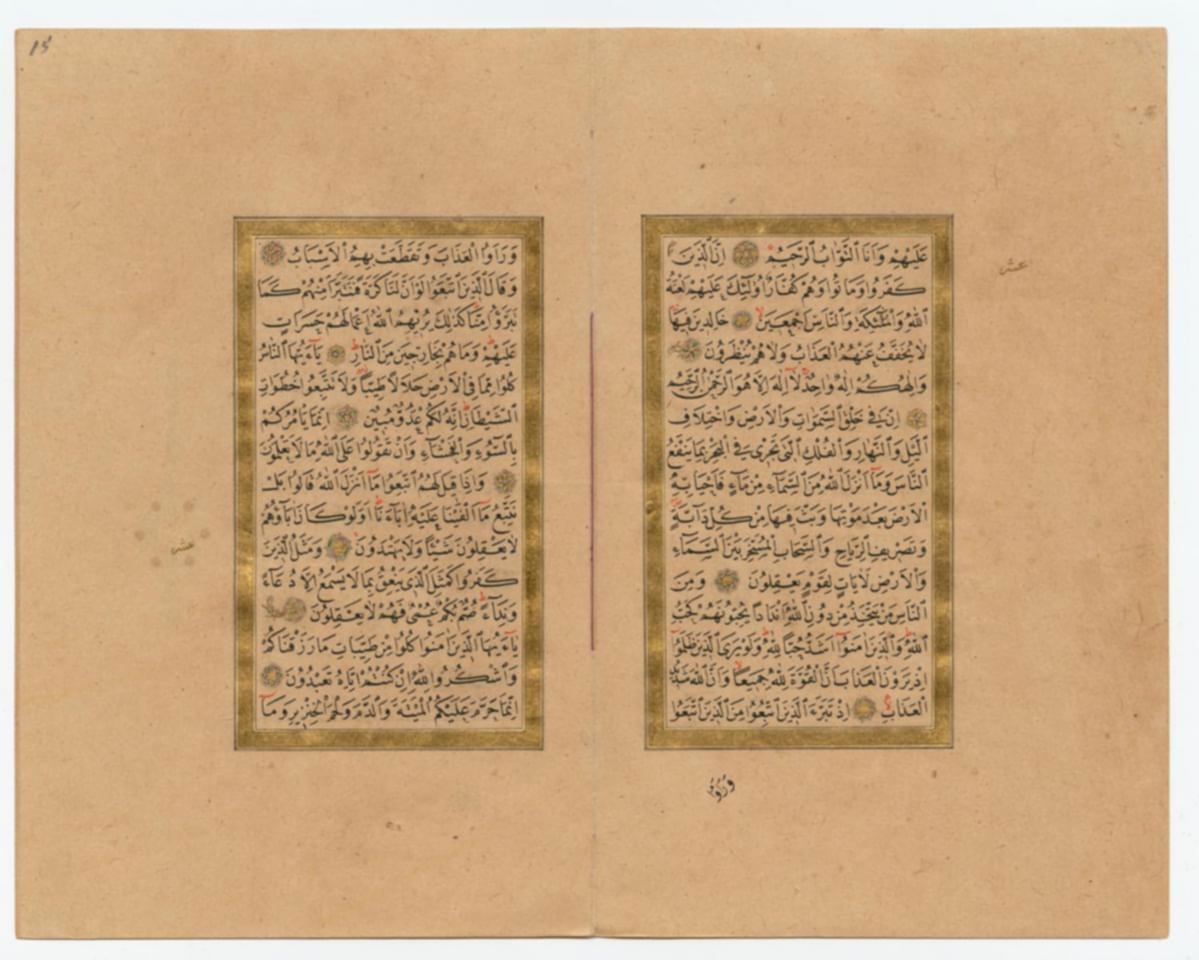 عَلَيْهِمْ وَاَنَا التَّوَّابُ الرَّحِيمُ اِنَّ الَّذِينَ
كَفَرُوا وَمَاتُوا وَهُمْ كُفَّارٌ اُولٰئِكَ عَلَيْهِمْ لَعْنَةُ
اللّٰهِ وَالْمَلٰئِكَةِ وَالنَّاسِ اَجْمَعِينَ خَالِدِينَ فِيهَا
لَا يُخَفَّفُ عَنْهُمُ الْعَذَابُ وَلَا هُمْ يُنْظَرُونَ
وَاِلٰهُكُمْ اِلٰهٌ وَاحِدٌ لَا اِلٰهَ اِلَّا هُوَ الرَّحْمٰنُ الرَّحِيمُ
اِنَّ فِي خَلْقِ السَّمٰوَاتِ وَالْاَرْضِ وَاخْتِلَافِ
الَّيْلِ وَالنَّهَارِ وَالْفُلْكِ الَّتِي تَجْرِي فِي الْبَحْرِ بِمَا يَنْفَعُ
النَّاسَ وَمَا اَنْزَلَ اللّٰهُ مِنَ السَّمَاءِ مِنْ مَاءٍ فَاَحْيَا بِهِ
الْاَرْضَ بَعْدَ مَوْتِهَا وَبَثَّ فِيهَا مِنْ كُلِّ دَابَّةٍ
وَتَصْرِيفِ الرِّيَاحِ وَالسَّحَابِ الْمُسَخَّرِ بَيْنَ السَّمَاءِ
وَالْاَرْضِ لَاٰيَاتٍ لِقَوْمٍ يَعْقِلُونَ وَمِنَ
النَّاسِ مَنْ يَتَّخِذُ مِنْ دُونِ اللّٰهِ اَنْدَادًا يُحِبُّونَهُمْ كَحُبِّ
اللّٰهِ وَالَّذِينَ اٰمَنُوا اَشَدُّ حُبًّا لِلّٰهِ وَلَوْ يَرَى الَّذِينَ ظَلَمُوا
اِذْ يَرَوْنَ الْعَذَابَ اَنَّ الْقُوَّةَ لِلّٰهِ جَمِيعًا وَاَنَّ اللّٰهَ شَدِيدُ
الْعَذَابِ اِذْ تَبَرَّاَ الَّذِينَ اتُّبِعُوا مِنَ الَّذِينَ اتَّبَعُوا
وَرَاَوُا
عشر
وَرَاَوُا الْعَذَابَ وَتَقَطَّعَتْ بِهِمُ الْاَسْبَابُ
وَقَالَ الَّذِينَ اتَّبَعُوا لَوْ اَنَّ لَنَا كَرَّةً فَنَتَبَرَّاَ مِنْهُمْ كَمَا
تَبَرَّؤُا مِنَّا كَذٰلِكَ يُرِيهِمُ اللّٰهُ اَعْمَالَهُمْ حَسَرَاتٍ
عَلَيْهِمْ وَمَا هُمْ بِخَارِجِينَ مِنَ النَّارِ يَاءَيُّهَا النَّاسُ
كُلُوا مِمَّا فِي الْاَرْضِ حَلَالًا طَيِّبًا وَلَا تَتَّبِعُوا خُطُوَاتِ
الشَّيْطَانِ اِنَّهُ لَكُمْ عَدُوٌّ مُبِينٌ اِنَّمَا يَاْمُرُكُمْ
بِالسُّوءِ وَالْفَحْشَاءِ وَاَنْ تَقُولُوا عَلَى اللّٰهِ مَا لَا تَعْلَمُونَ
وَاِذَا قِيلَ لَهُمُ اتَّبِعُوا مَا اَنْزَلَ اللّٰهُ قَالُوا بَلْ
نَتَّبِعُ مَا اَلْفَيْنَا عَلَيْهِ اٰبَاءَنَا اَوَلَوْ كَانَ اٰبَاؤُهُمْ
لَا يَعْقِلُونَ شَيْئًا وَلَا يَهْتَدُونَ وَمَثَلُ الَّذِينَ
كَفَرُوا كَمَثَلِ الَّذِي يَنْعِقُ بِمَا لَا يَسْمَعُ اِلَّا دُعَاءً
وَنِدَاءً صُمٌّ بُكْمٌ عُمْيٌ فَهُمْ لَا يَعْقِلُونَ
يَاءَيُّهَا الَّذِينَ اٰمَنُوا كُلُوا مِنْ طَيِّبَاتِ مَا رَزَقْنَاكُمْ
وَاشْكُرُوا لِلّٰهِ اِنْ كُنْتُمْ اِيَّاهُ تَعْبُدُونَ
اِنَّمَا حَرَّمَ عَلَيْكُمُ الْمَيْتَةَ وَالدَّمَ وَلَحْمَ الْخِنْزِيرِ وَمَا
عشر